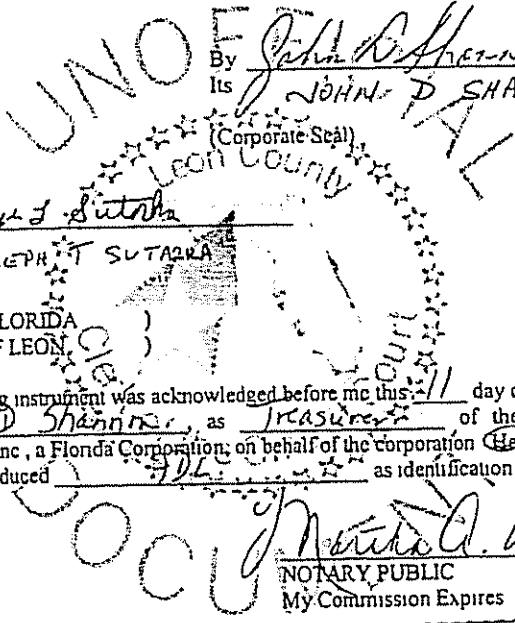 UNOFFICIAL
By John D Shann
Its JOHN D SHA
(Corporate Seal)
Leon County
EPH T SUTAZRA
LORIDA )
F LEON )
Clerk Court
g instrument was acknowledged before me this 11 day o
D Shannon, as Treasurer of the
nc , a Florida Corporation, on behalf of the corporation He
duced FDL as identification
Martha A.
NOTARY PUBLIC
My Commission Expires
DOCUMENT